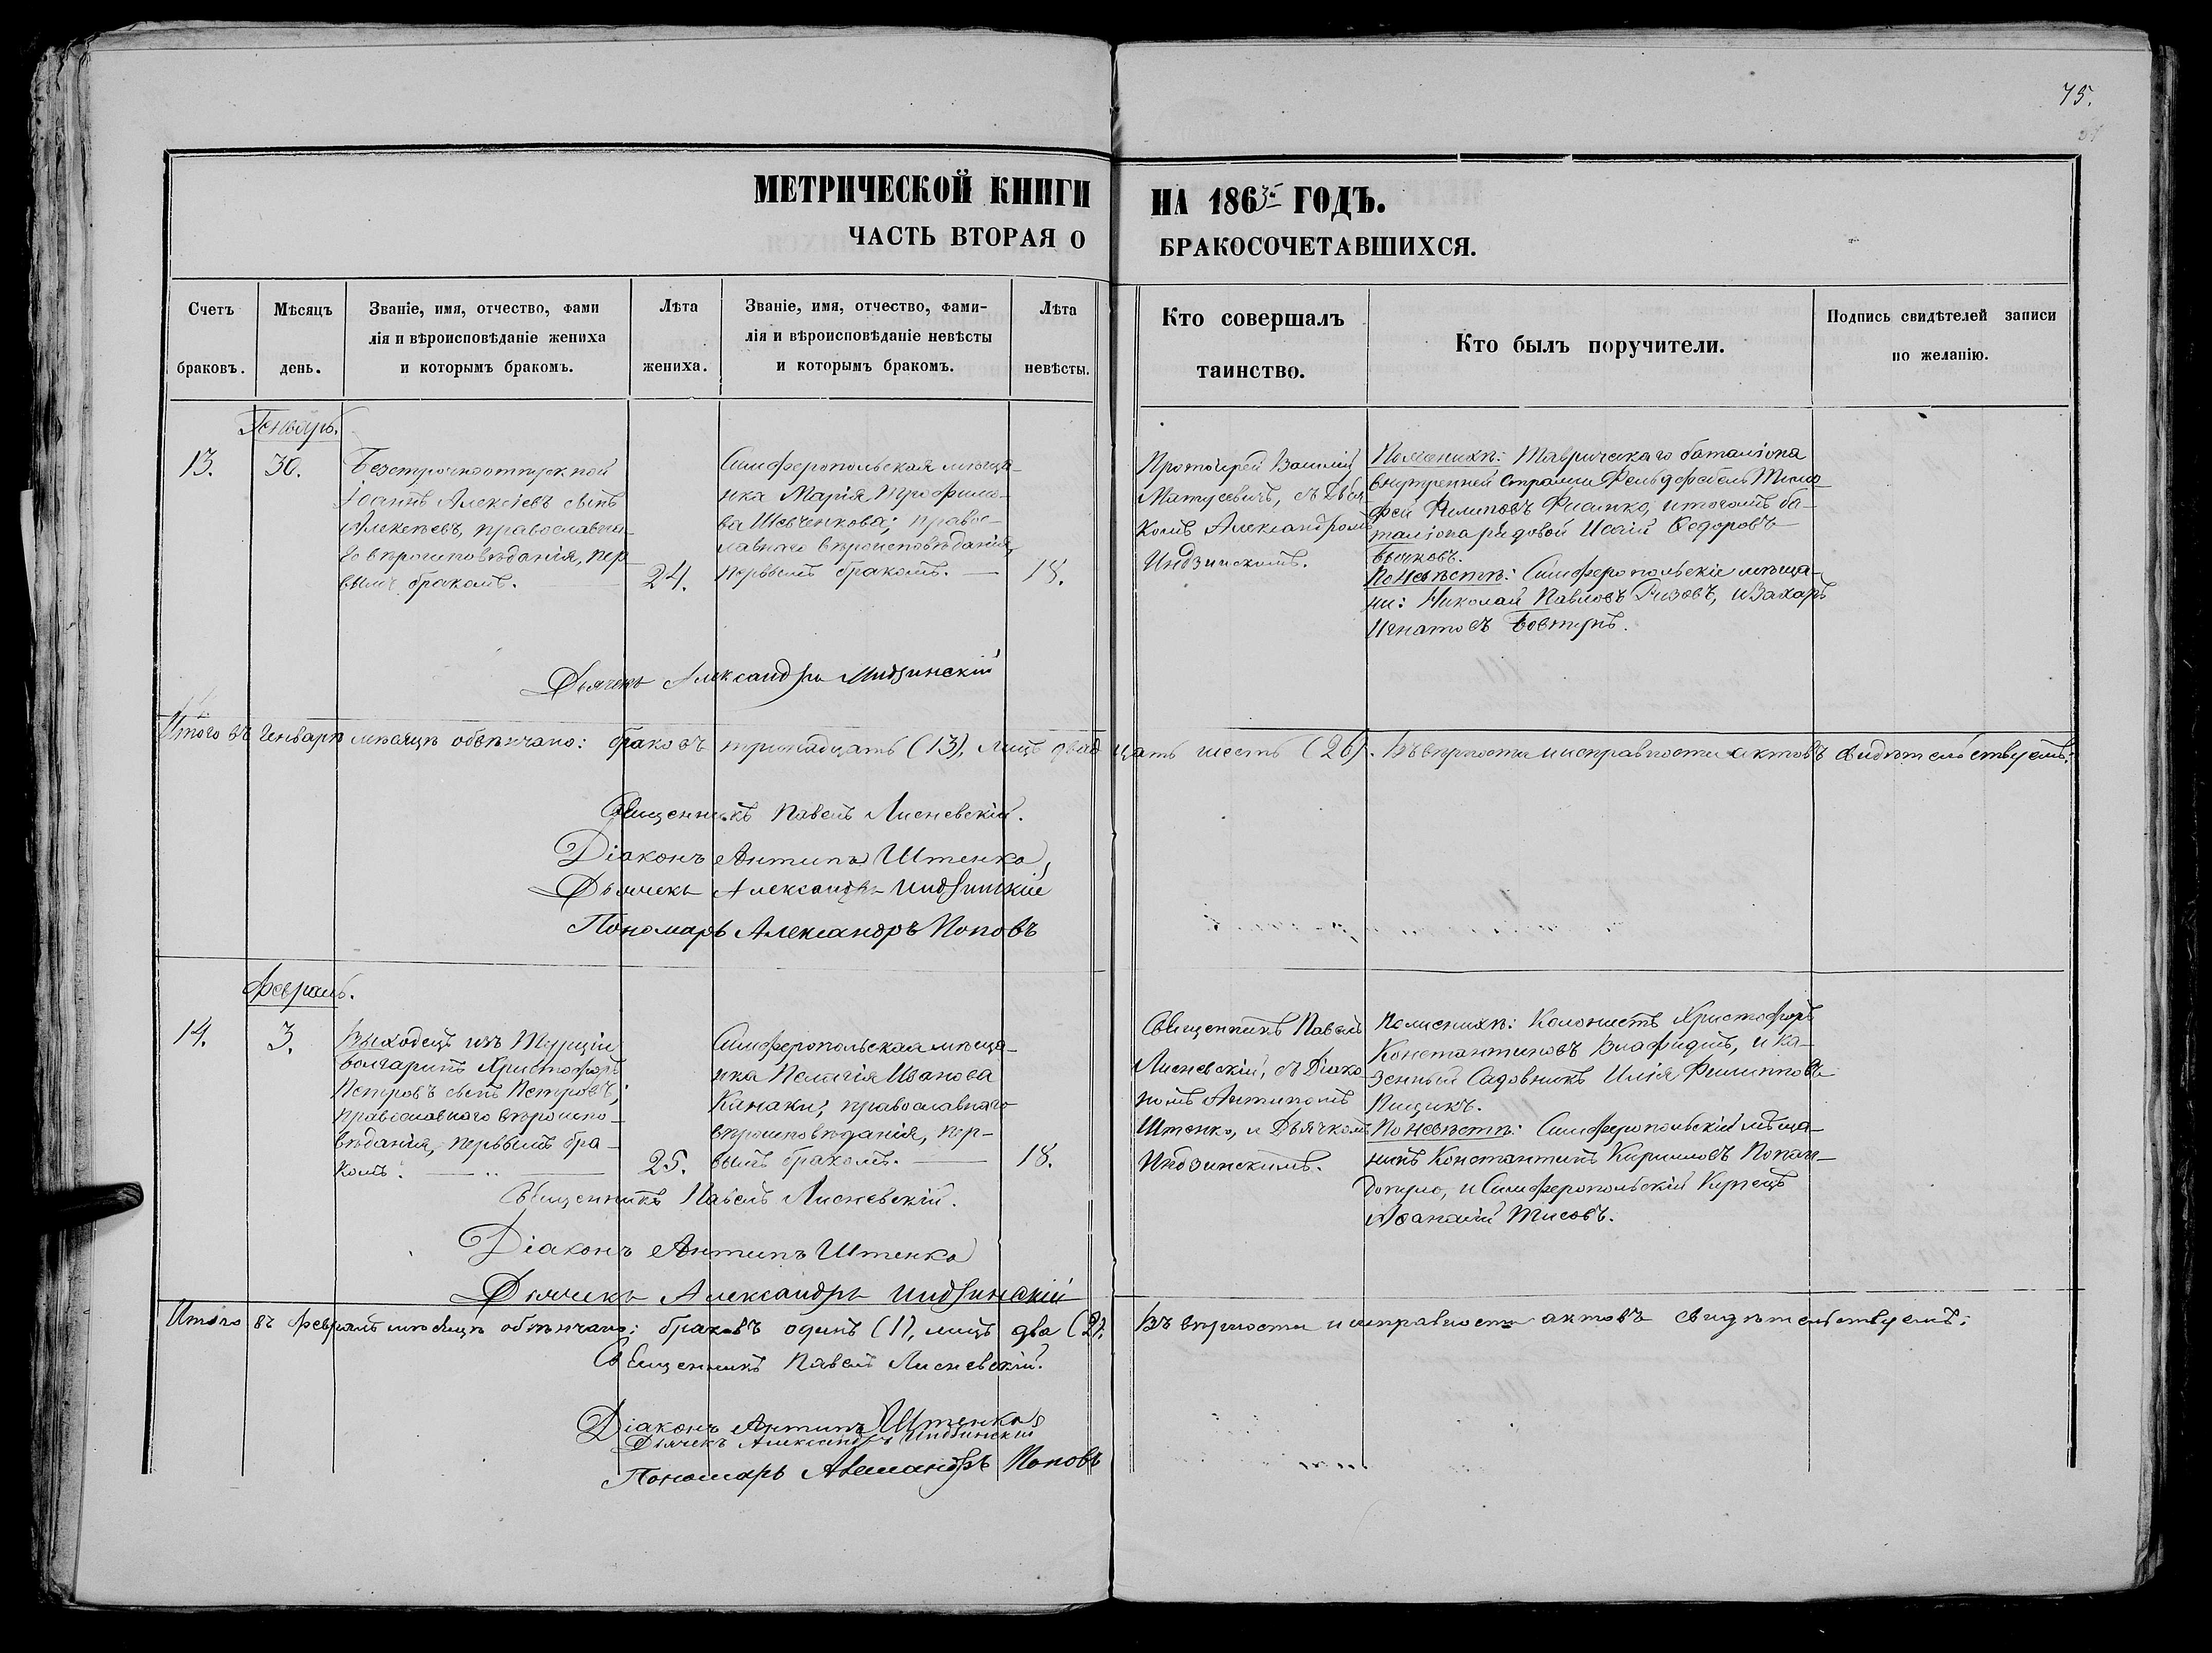 75.
МЕТРИЧЕСКОЙ КНИГИ НА 1863й ГОДЪ.
ЧАСТЬ ВТОРАЯ О БРАКОСОЧЕТАВШИХСЯ.
Счетъ браковъ.
Мѣсяцъ день.
Званіе, имя, отчество, фами
лія и вѣроисповѣданіе жениха
и которымъ бракомъ.
Лѣта жениха.
Званіе, имя, отчество, фами-
лія и вѣроисповѣданіе невѣсты
и которымъ бракомъ.
Лѣта невѣсты.
Кто совершалъ
таинство.
Кто былъ поручители.
Подпись свидѣтелей записи
по желанію.
Генварь.
13.
30.
Безсрочноотпускной
Іоаннъ Алексіевъ сынъ
Алексѣевъ, православна-
го вѣроисповѣданія, пер-
вымъ бракомъ.
24.
Симферопольская мѣща-
нка Марія Трофимо-
ва Шевченкова; правос-
лавнаго вѣроисповѣданія,
первымъ бракомъ.
18.
Протоіерей Василій
Матусевичъ, съ Дьяч-
комъ Александромъ
Индзинскимъ.
По женихѣ: Таврическаго баталіона
внутренней Стражи Фельдфебель Тимо-
фей Филиповъ, итогожъ ба-
таліона рядовой Исаій Ѳедоровъ
Бычковъ.
По невѣстѣ: Симферопольскіе мѣща-
ни: Николай Павловъ Ризовъ, и Захаръ
Игнатовъ Бовтунъ.
Дьячекъ Александръ Индзинскій
Итого въ Генварѣ мѣсяцѣ обвѣнчано: браковъ тринадцать (13), лицъ двадцать шесть (26). Въ вѣрности и исправности актовъ свидѣтельствуемъ:
Священникъ Павелъ Лисневскій.
Діаконъ Антипъ Штенко,
Дьячекъ Александръ Индзинскій
Пономарь Александръ Поповъ
Февраль.
14.
3.
Выходецъ изъ Турціи
болгаринъ Христофоръ
Петровъ сынъ Петровъ;
православнаго вѣроиспо-
вѣданія, первымъ бра-
комъ.
25.
Симферопольская мѣща-
нка Пелагія Иванова
Канаки; православнаго
вѣроисповѣданія, пер-
вымъ бракомъ.
18.
Священникъ Павелъ
Лисневскій, съ Діако-
номъ Антипомъ
Штенко, и Дьячкомъ
Индзинскимъ.
По женихѣ: Колонистъ Христофоръ
Константиновъ, и Ка-
зенный Садовникъ Илія Филипповъ
Пищикъ.
По невѣстѣ: Симферопольскій мѣща-
нинъ Константинъ Кириловъ Попан-
допуло, и Симферопольскій Купецъ
Аѳанасій Тисовъ.
Священникъ Павелъ Лисневскій.
Діаконъ Антипъ Штенко
Дьячекъ Александръ Индзинскій
Итого въ Февралѣ мѣсяцѣ обвѣнчано: браковъ одинъ (1), лицъ два (2). Въ вѣрности и исправности актовъ свидѣтельствуемъ:
Священникъ Павелъ Лисневскій.
Діаконъ Антипъ Штенко,
Дьячекъ Александръ Индзинскій
Пономарь Александръ Поповъ